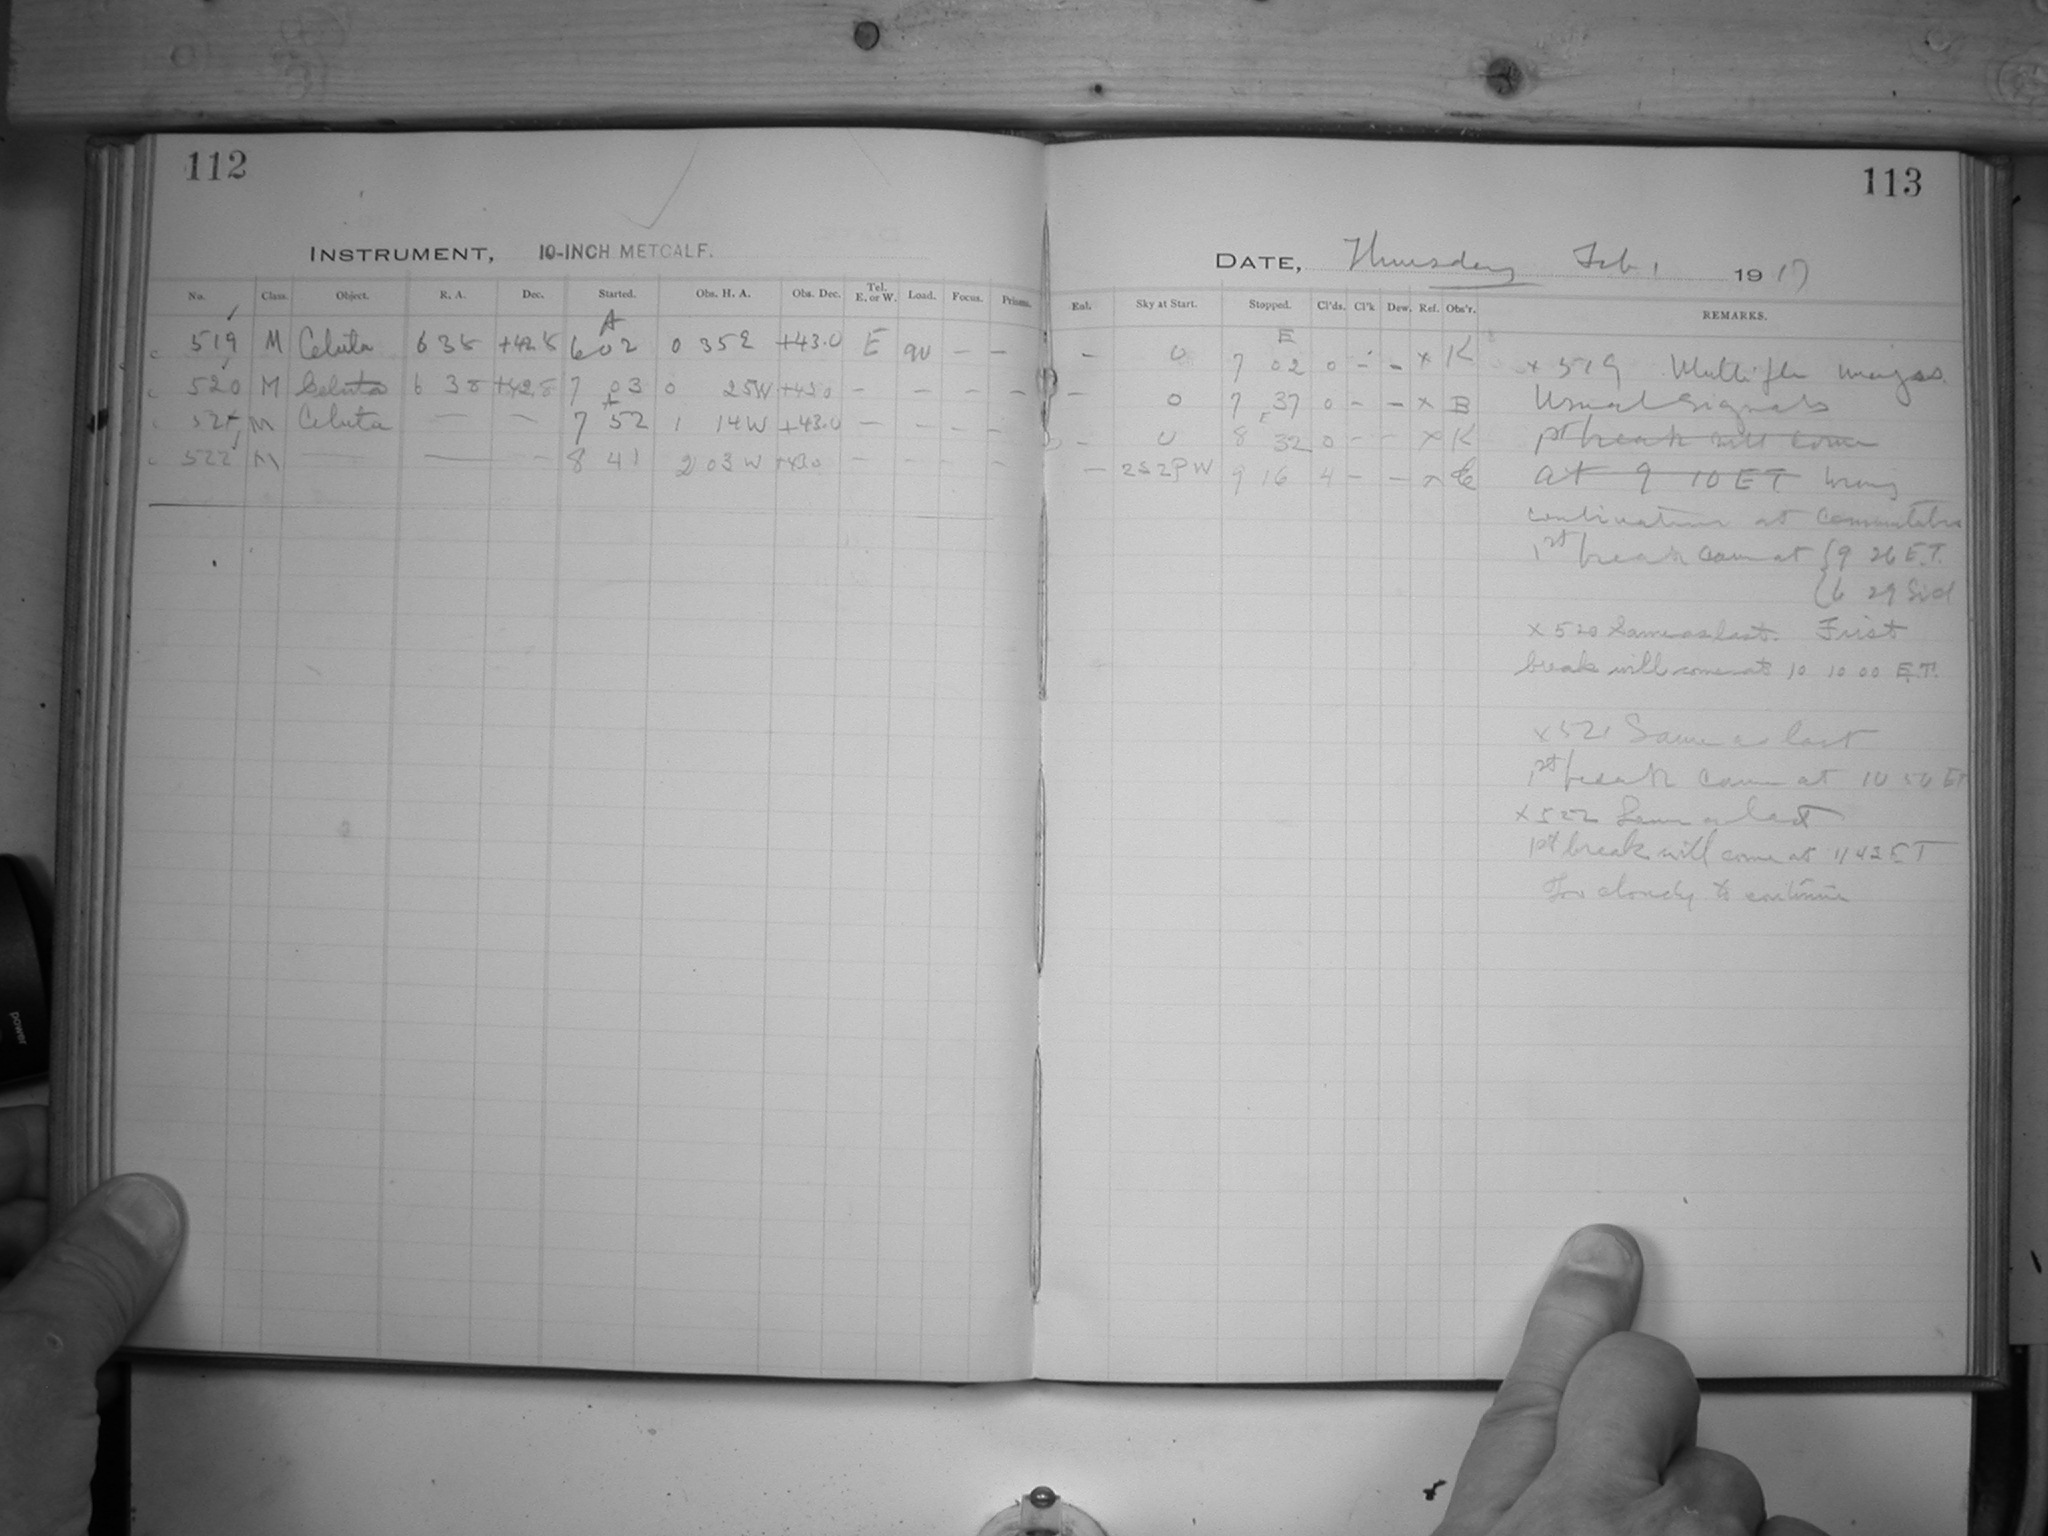 112
INSTRUMENT, 10-INCH METCALF.
No. Class. Object. R. A. Dec. Started. Obs. H. A. Obs. Dec. Tel. E. or W. Load. Focus. Prisms.
519 M Celuta 6 38 +42.8 6 02 0 35 E +43.0 E 90 — —
520 M Celuta 6 38 +42.8 7 03 0 25W +43.0 — — — —
521 M Celuta — — 7 52 1 14W +43.0 — — — —
522 M — — — 8 41 2 03 W +43.0 — — — —
113
DATE, Thursday Feb 1 1917
Enl. Sky at Start. Stopped. Cl'ds. Cl'k Dew. Ref. Obs'r. REMARKS.
— 0 7 02 0 - - x K
— 0 7 37 0 - - x B
— 0 8 32 0 - - x K
— 2S2PW 9 16 4 - - x
x 519 Multiple images
Usual signals
1st break will come
at 9 10 ET Wrong
combination at
1st break came at 9 26 E.T.
6 29 Sid
x 520 Same as last. First
break will come at 10 10 00 E.T.
x 521 Same as last
1st break came at 10 56 ET
x 522 Same as last
1st break will come at 11 43 ET
Too cloudy to continue
power